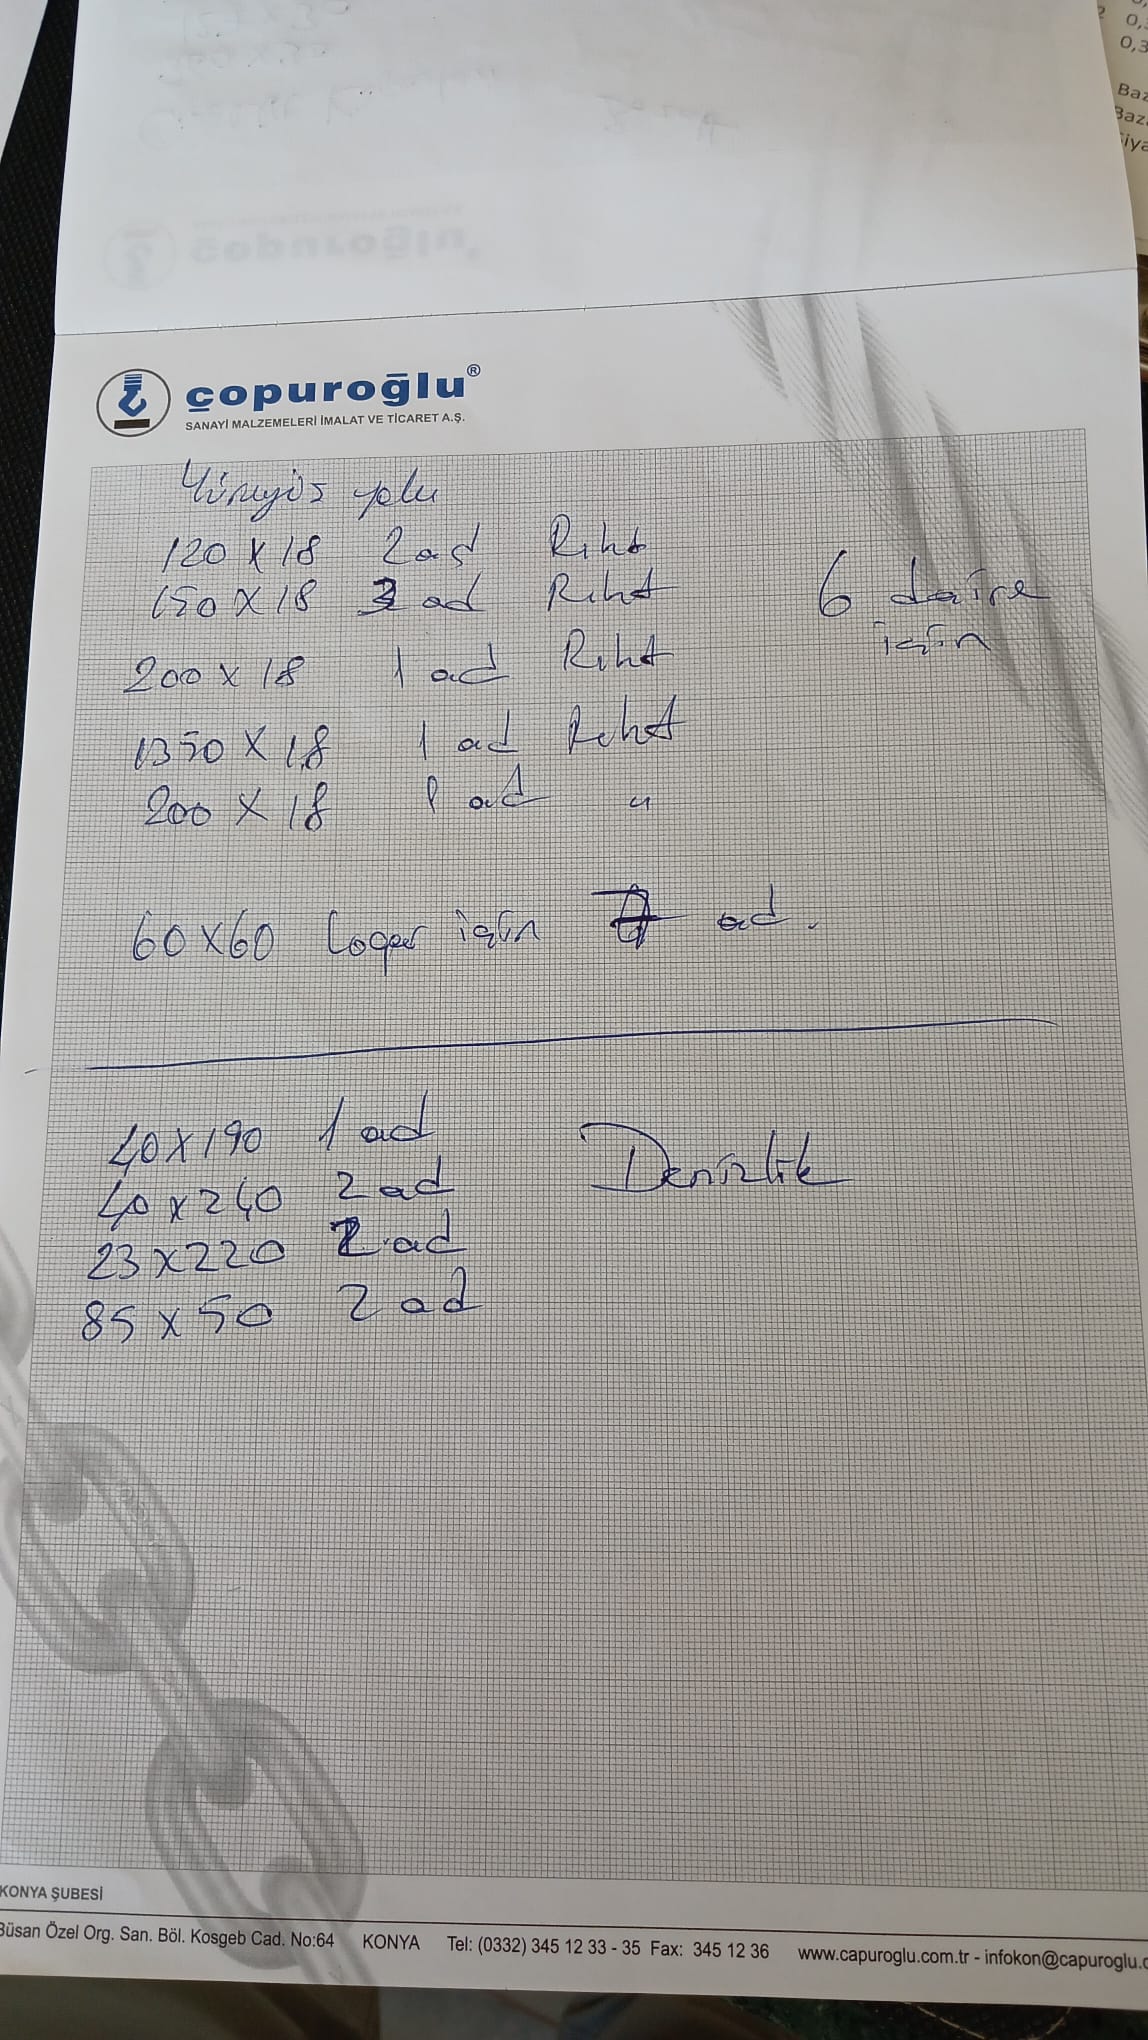 0,3
Baz
Baz
iya
çopuroğlu®
SANAYİ MALZEMELERİ İMALAT VE TİCARET A.Ş.
Yürüyüş yolu
120 X 18 2 ad Riht
150 X 18 3 ad Riht
6 daire
için
200 X 18 1 ad Riht
1350 X 18 1 ad Riht
200 X 18 1 ad "
60X60 Logar için ad.
40X190 1 ad
Denizlik
40X240 2 ad
23X220 2 ad
85X50 2 ad
KONYA ŞUBESİ
Büsan Özel Org. San. Böl. Kosgeb Cad. No:64 KONYA Tel: (0332) 345 12 33 - 35 Fax: 345 12 36 www.capuroglu.com.tr - infokon@capuroglu.c